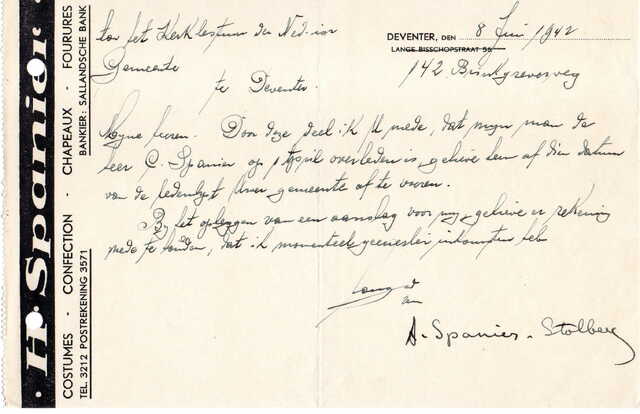 H. Spanier
COSTUMES - CONFECTION - CHAPEAUX - FOURURES
TEL. 3212 POSTREKENING 3571 BANKIER: SALLANDSCHE BANK
DEVENTER, DEN 8 Juni 1942
LANGE BISSCHOPSTRAAT 56
142 Brinkgreverweg
het Kerkbestuur der Ned-isr
Gemeente
te Deventer.
Mijne heeren. Door deze deel ik U mede, dat mijn man de
heer C. Spanier op 1 April overleden is, gelieve hem af dien datum
van de ledenlijst Uwer gemeente af te voeren.
Bij het opleggen van een aanslag voor mij, gelieve er rekening
mede te houden, dat ik momenteel geenerlei inkomsten heb
A. Spanier - Stolberg